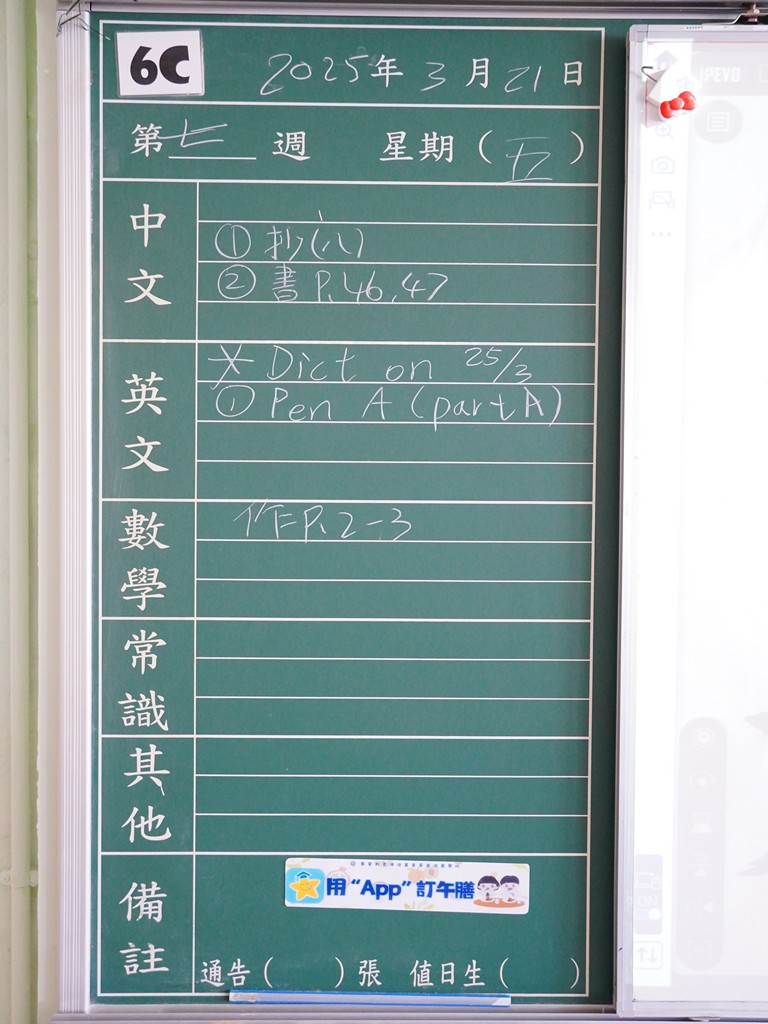 6C
2025年3月21日
第七週 星期(五)
中文
①抄(八)
②書P.46,47
英文
* Dict on 25/3
① Pen A (part A)
數學
作P.2-3
常識
其他
備註
用“App”訂午膳
通告( )張 值日生( )
IPEVO
ON